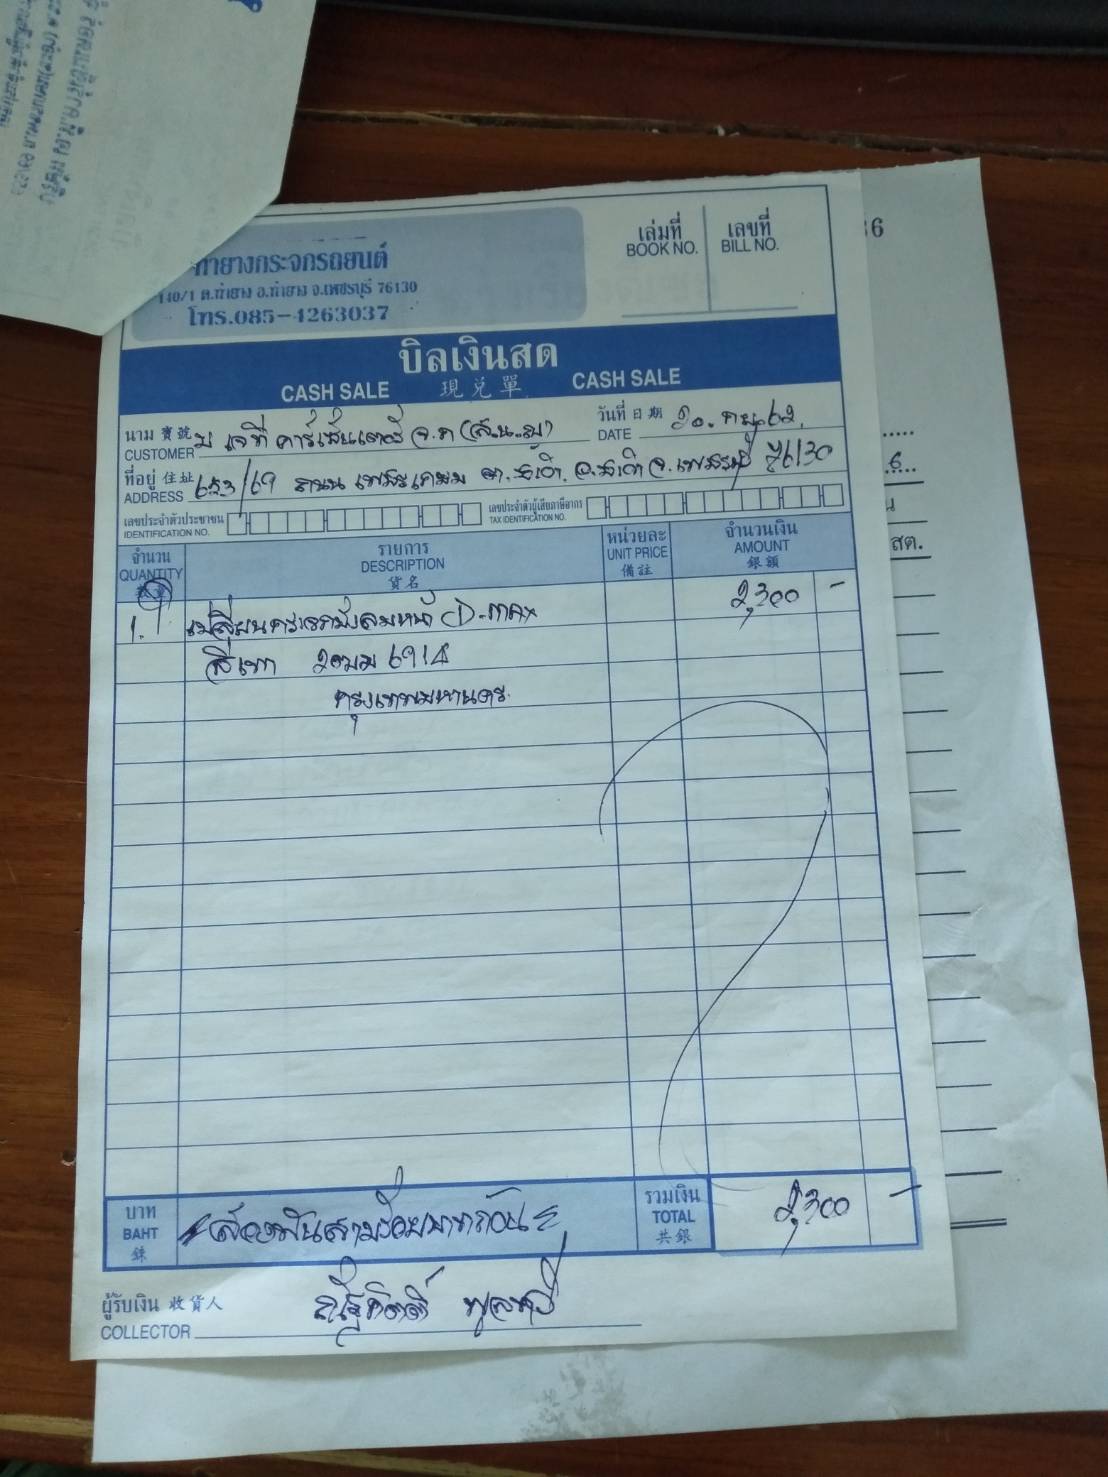 ท่ายางกระจกรถยนต์
140/1 ต.ท่ายาง อ.ท่ายาง จ.เพชรบุรี 76130
โทร.085-4263037
เล่มที่ เลขที่
BOOK NO. BILL NO.
6
บิลเงินสด
CASH SALE 現兌單 CASH SALE
นาม 寶號 วันที่ 日期 20. กย. 62.
CUSTOMER DATE
ที่อยู่ 住址 653/69 ถนน เพชรเกษม
ADDRESS 76130
เลขประจำตัวประชาชน เลขประจำตัวผู้เสียภาษีอากร
IDENTIFICATION NO. TAX IDENTIFICATION NO.
สต.
จำนวน รายการ หน่วยละ จำนวนเงิน
QUANTITY DESCRIPTION UNIT PRICE AMOUNT
貨名 備註 銀額
1. เปลี่ยนกระจกบังลมหน้า D-max 2,300 -
สีเทา 2ฒฆ 6914
กรุงเทพมหานคร
บาท สองพันสามร้อยบาทถ้วน รวมเงิน 2,300 -
BAHT TOTAL
銖 共銀
ผู้รับเงิน 收貨人
COLLECTOR